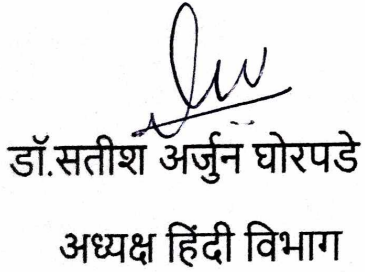 डॉ.सतीश अर्जुन घोरपडे
अध्यक्ष हिंदी विभाग